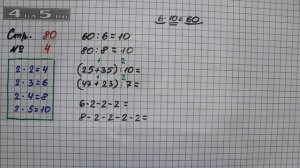 4 на 5.ru
6 · 10 = 60.
Стр. 80
№ 4
60 : 6 = 10
80 : 8 = 10
1 2
(25+35) : 10 =
1 2
(47+23) : 7 =
6-2-2-2=
8-2-2-2-2=
2 · 2 = 4
2 · 3 = 6
2 · 4 = 8
2 · 5 = 10